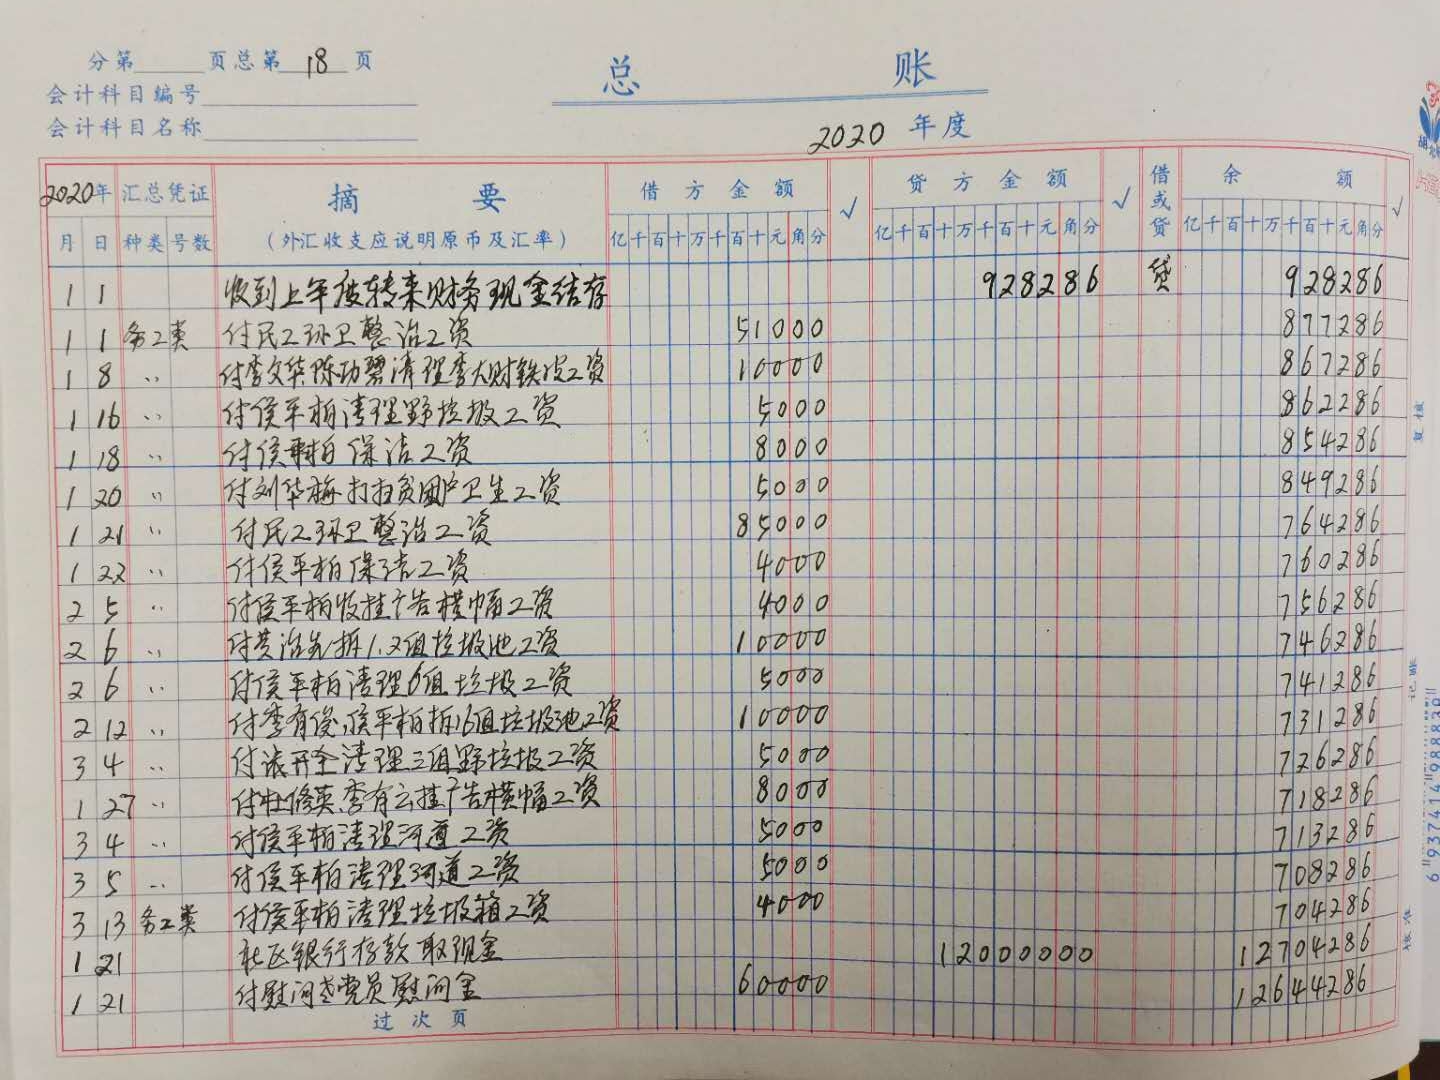 分第 页总第 18 页
会计科目编号
会计科目名称
总 账
2020 年度
2020年 汇总凭证 摘 要 借方金额 √ 贷方金额 √ 借或贷 余 额 √
月 日 种类 号数 (外汇收支应说明原币及汇率) 亿千百十万千百十元角分 亿千百十万千百十元角分 亿千百十万千百十元角分
1 1 收到上年度转来财务现金结存 928286 贷 928286
1 1 务工类 付民工环卫整治工资 51000 877286
1 8 〃 付李文华陈功碧清理李大财铁皮工资 10000 867286
1 16 〃 付侯平柏清理野垃圾工资 5000 862286
1 18 〃 付侯平柏保洁工资 8000 854286
1 20 〃 付刘华梅打扫贫困户卫生工资 5000 849286
1 21 〃 付民工环卫整治工资 85000 764286
1 22 〃 付侯平柏保洁工资 4000 760286
2 5 〃 付侯平柏收挂广告横幅工资 4000 756286
2 6 〃 付黄治先拆1.2组垃圾池工资 10000 746286
2 6 〃 付侯平柏清理6组垃圾工资 5000 741286
2 12 〃 付李有俊、侯平柏拆16组垃圾池工资 10000 731286
3 4 〃 付张开全清理三组野垃圾工资 5000 726286
1 27 〃 付杜修英李有云挂广告横幅工资 8000 718286
3 4 〃 付侯平柏清理河道工资 5000 713286
3 5 〃 付侯平柏清理河道工资 5000 708286
3 13 务工类 付侯平柏清理垃圾箱工资 4000 704286
1 21 社区银行存款取现金 12000000 12704286
1 21 付慰问老党员慰问金 60000 12644286
过次页
复核
记账
核准
6 937414 988830